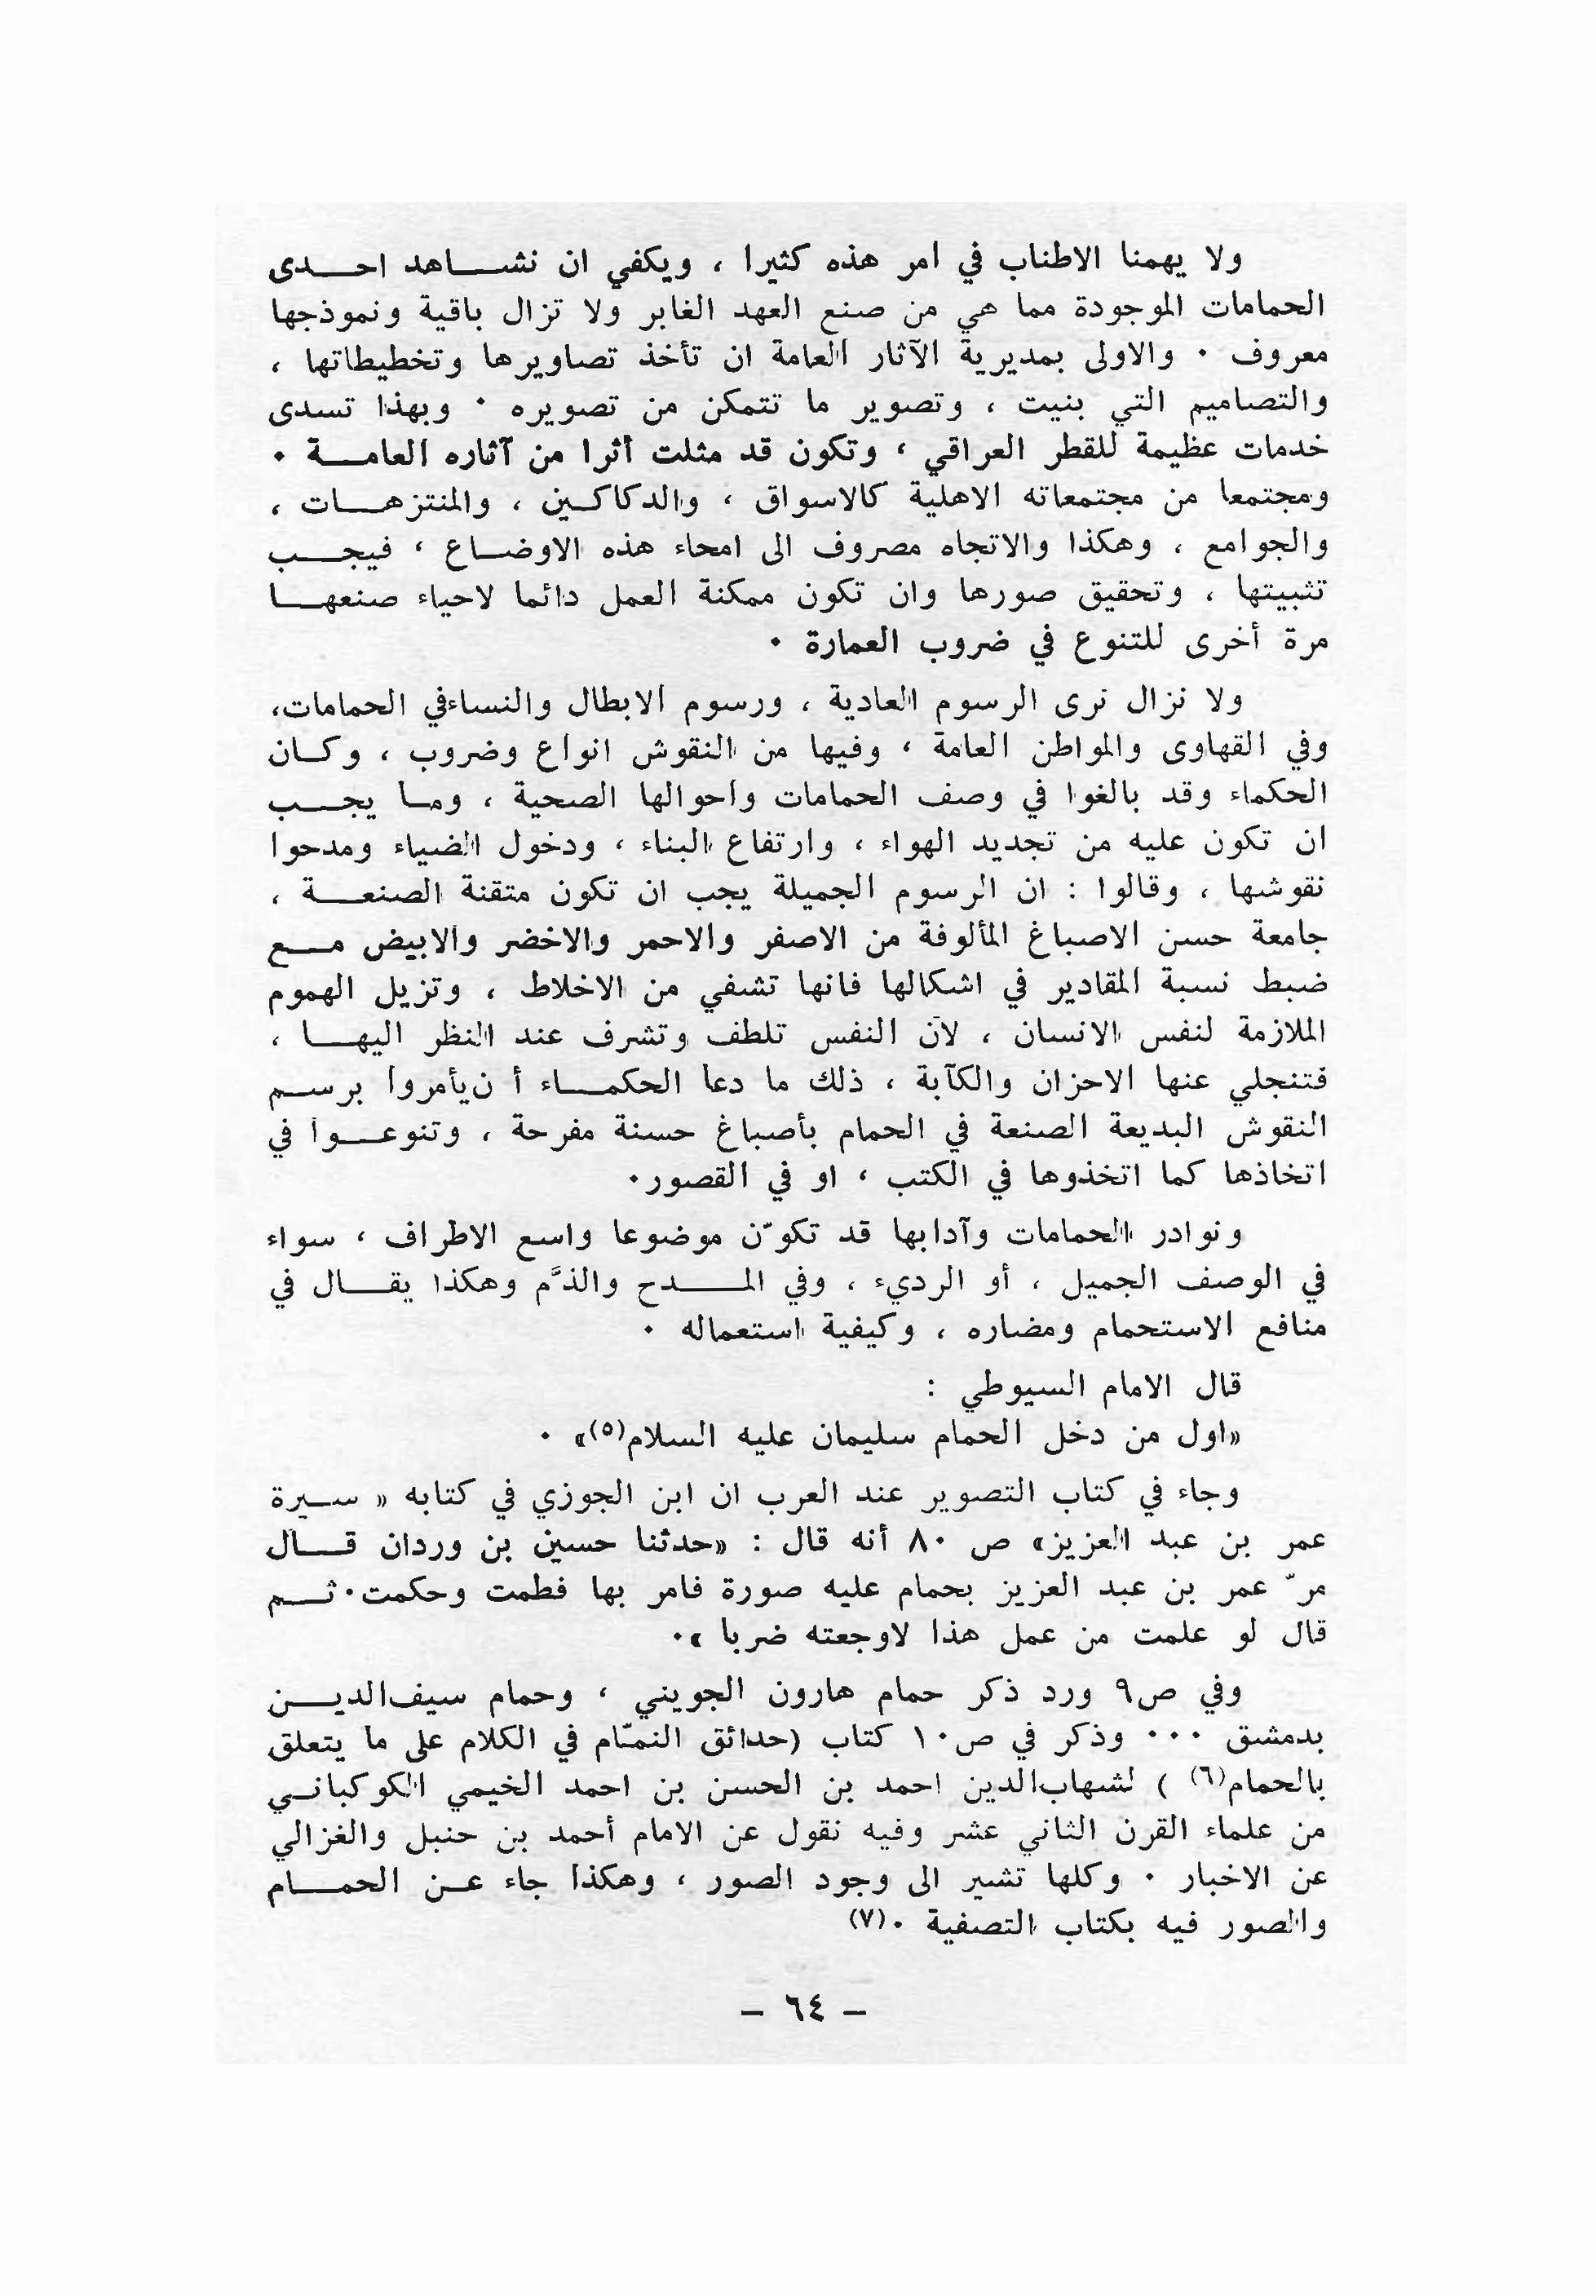 ولا يهمنا الاطناب في امر هذه كثيرا ، ويكفي ان نشاهد احدى
الحمامات الموجودة مما هي من صنع العهد الغابر ولا تزال باقية ونموذجها
معروف ٠ والاولى بمديرية الآثار العامة ان تأخذ تصاويرها وتخطيطاتها ،
والتصاميم التي بنيت ، وتصوير ما تتمكن من تصويره ٠ وبهذا تسدى
خدمات عظيمة للقطر العراقي ، وتكون قد مثلت أثرا من آثاره العامة ٠
ومجتمعا من مجتمعاته الاهلية كالاسواق ، والدكاكين ، والمنتزهات ،
والجوامع ، وهكذا والاتجاه مصروف الى امحاء هذه الاوضاع ، فيجب
تثبيتها ، وتحقيق صورها وان تكون ممكنة العمل دائما لاحياء صنعها
مرة أخرى للتنوع في ضروب العمارة ٠
ولا نزال نرى الرسوم العادية ، ورسوم الابطال والنساءفي الحمامات،
وفي القهاوى والمواطن العامة ، وفيها من النقوش انواع وضروب ، وكان
الحكماء وقد بالغوا في وصف الحمامات واحوالها الصحية ، وما يجب
ان تكون عليه من تجديد الهواء ، وارتفاع البناء ، ودخول الضياء ومدحوا
نقوشها ، وقالوا : ان الرسوم الجميلة يجب ان تكون متقنة الصنعة ،
جامعة حسن الاصباغ المألوفة من الاصفر والاحمر والاخضر والابيض مع
ضبط نسبة المقادير في اشكالها فانها تشفي من الاخلاط ، وتزيل الهموم
الملازمة لنفس الانسان ، لأن النفس تلطف وتشرف عند النظر اليها ،
فتنجلي عنها الاحزان والكآبة ، ذلك ما دعا الحكماء أ نيأمروا برسم
النقوش البديعة الصنعة في الحمام بأصباغ حسنة مفرحة ، وتنوعوا في
اتخاذها كما اتخذوها في الكتب ، او في القصور٠
ونوادر الحمامات وآدابها قد تكوّن موضوعا واسع الاطراف ، سواء
في الوصف الجميل ، أو الرديء ، وفي المدح والذّم وهكذا يقال في
منافع الاستحمام ومضاره ، وكيفية استعماله ٠
قال الامام السيوطي :
«اول من دخل الحمام سليمان عليه السلام(٥)» ٠
وجاء في كتاب التصوير عند العرب ان ابن الجوزي في كتابه « سيرة
عمر بن عبد العزيز» ص ٨٠ أنه قال : «حدثنا حسين بن وردان قال
مرّ عمر بن عبد العزيز بحمام عليه صورة فامر بها فطمت وحكمت٠ثم
قال لو علمت من عمل هذا لاوجعته ضربا »٠
وفي ص٩ ورد ذكر حمام هارون الجويني ، وحمام سيف‌الدين
بدمشق ٠٠٠ وذكر في ص١٠ كتاب (حدائق النمّام في الكلام على ما يتعلق
بالحمام(٦) ) لشهاب‌الدين احمد بن الحسن بن احمد الخيمي الكوكباني
من علماء القرن الثاني عشر وفيه نقول عن الامام أحمد بن حنبل والغزالي
عن الاخبار ٠ وكلها تشير الى وجود الصور ، وهكذا جاء عن الحمام
والصور فيه بكتاب التصفية ٠(٧)
– ٦٤ –